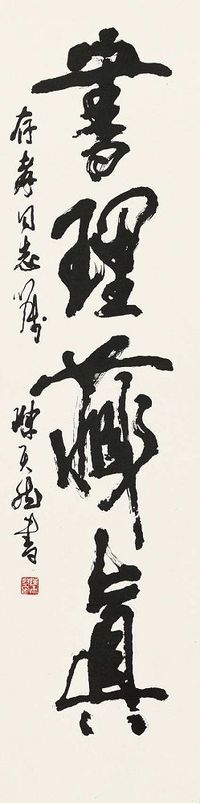 書理藏真
存孝同志属
陳天然書